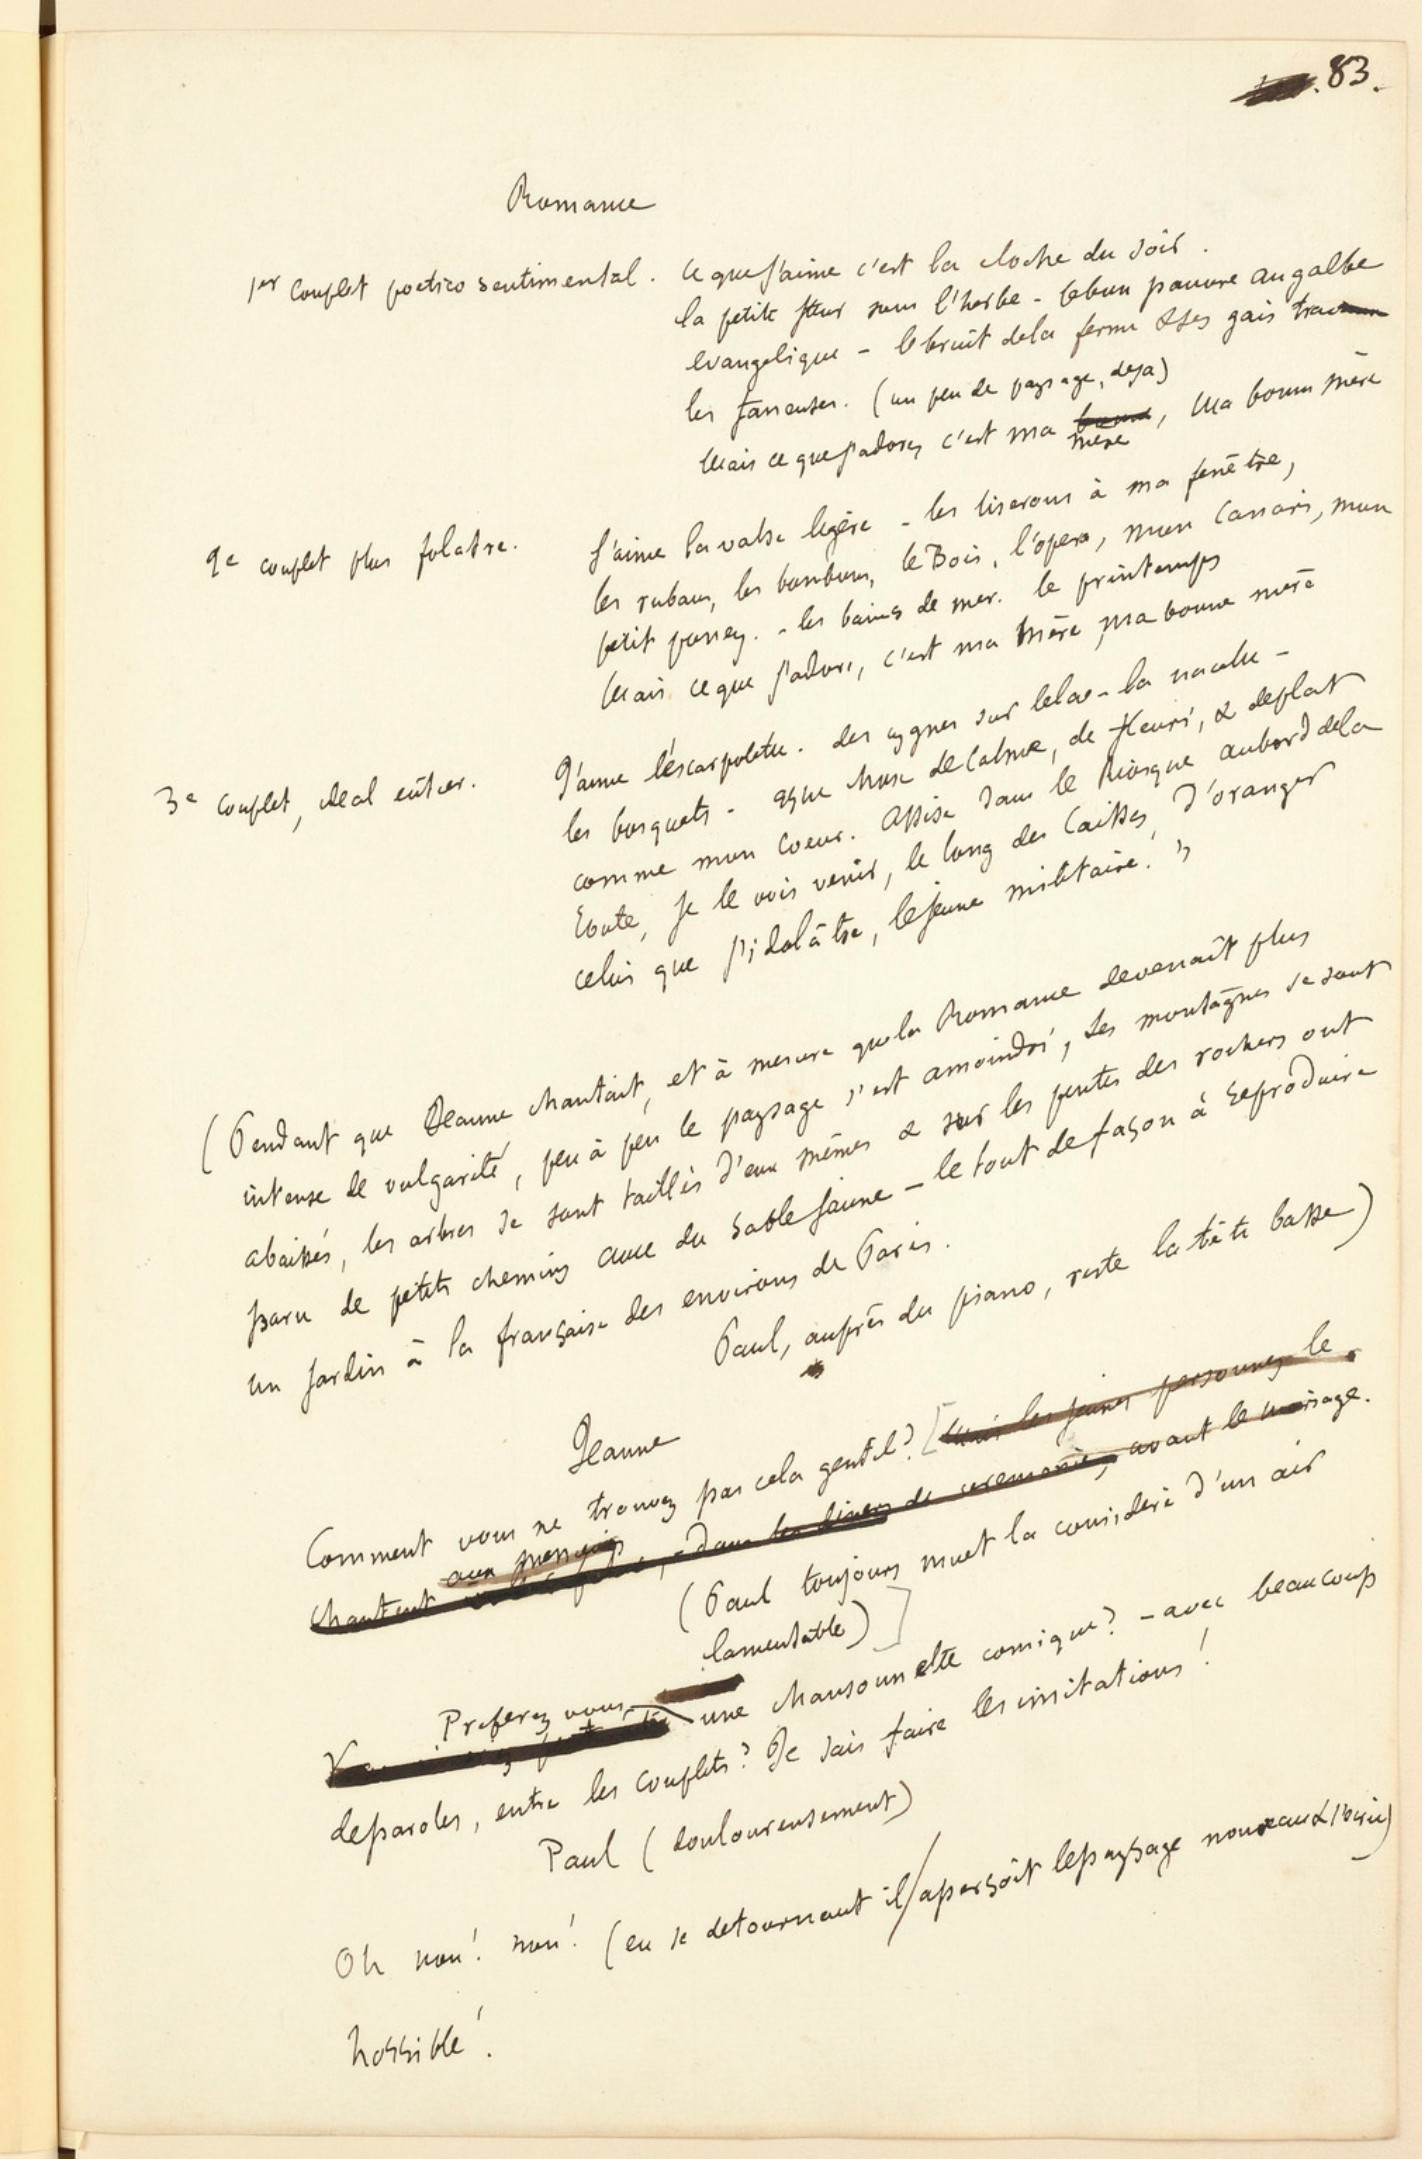 83.
Romance
1er couplet poetico sentimental. Ce que j'aime c'est la cloche du soir.
la petite fleur sous l'herbe - le bon pauvre au galbe
evangelique - le bruit de la ferme & ses gais
les faneuses. (un peu de paysage, deja)
Mais ce que j'adore, c'est ma mère, Ma bonne mère
2e couplet plus folatre. J'aime la valse legère - les liserons à ma fenêtre,
les rubans, les bonbons, le Bois, l'opera, mon canari, mon
petit poney. - les bains de mer. le printemps
Mais ce que j'adore, c'est ma mère, ma bonne mère
3e couplet, ideal entier. J'aime l'escarpolette. des cygnes sur le lac - la nacelle -
les bosquets - qque chose de calme, de fleuri, & de plat
comme mon coeur. Assise dans le Kiosque au bord de la
route, je le vois venir, le long des caisses d'oranger
celui que j'idolâtre, le jeune militaire! »
(Pendant que Jeanne chantait, et à mesure que la Romance devenait plus
intense de vulgarité, peu à peu le paysage s'est amoindri, les montagnes se sont
abaissés, les arbres se sont taillés d'eux mêmes & sur les pentes des rochers ont
paru de petits chemins avec du sable jaune - le tout de façon à reproduire
un jardin à la française des environs de Paris.
Paul, auprès du piano, reste la tête basse)
Jeanne
Comment vous ne trouvez pas cela gentil? [Mais les jeunes personnes le
aux
chantent dans les diners de ceremonie, avant le mariage.
(Paul toujours muet la considère d'un air
lamentable)]
Preferez vous
une chansonnette comique? - avec beaucoup
de paroles, entre les couplets? Je sais faire les imitations!
Paul (douloureusement)
Oh non! non! (en se detournant il/aperçoit le paysage nouveau & s'ecrie)
horrible!